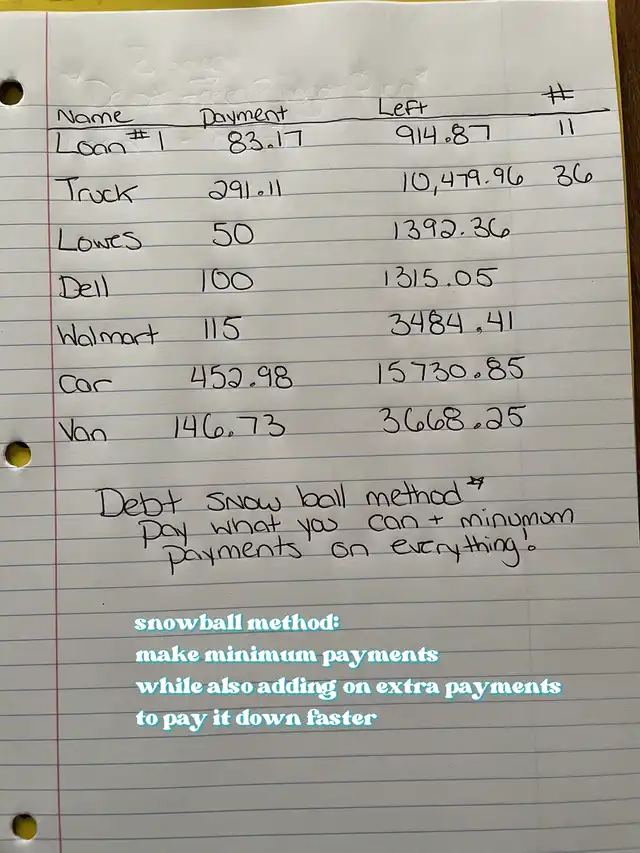 Name Payment Left #
Loan #1 83.17 914.87 11
Truck 291.11 10,479.96 36
Lowes 50 1392.36
Dell 100 1315.05
Walmart 115 3484.41
Car 452.98 15730.85
Van 146.73 3668.25
Debt snow ball method*
Pay what you can + minumom
payments on everything!
snowball method:
make minimum payments
while also adding on extra payments
to pay it down faster